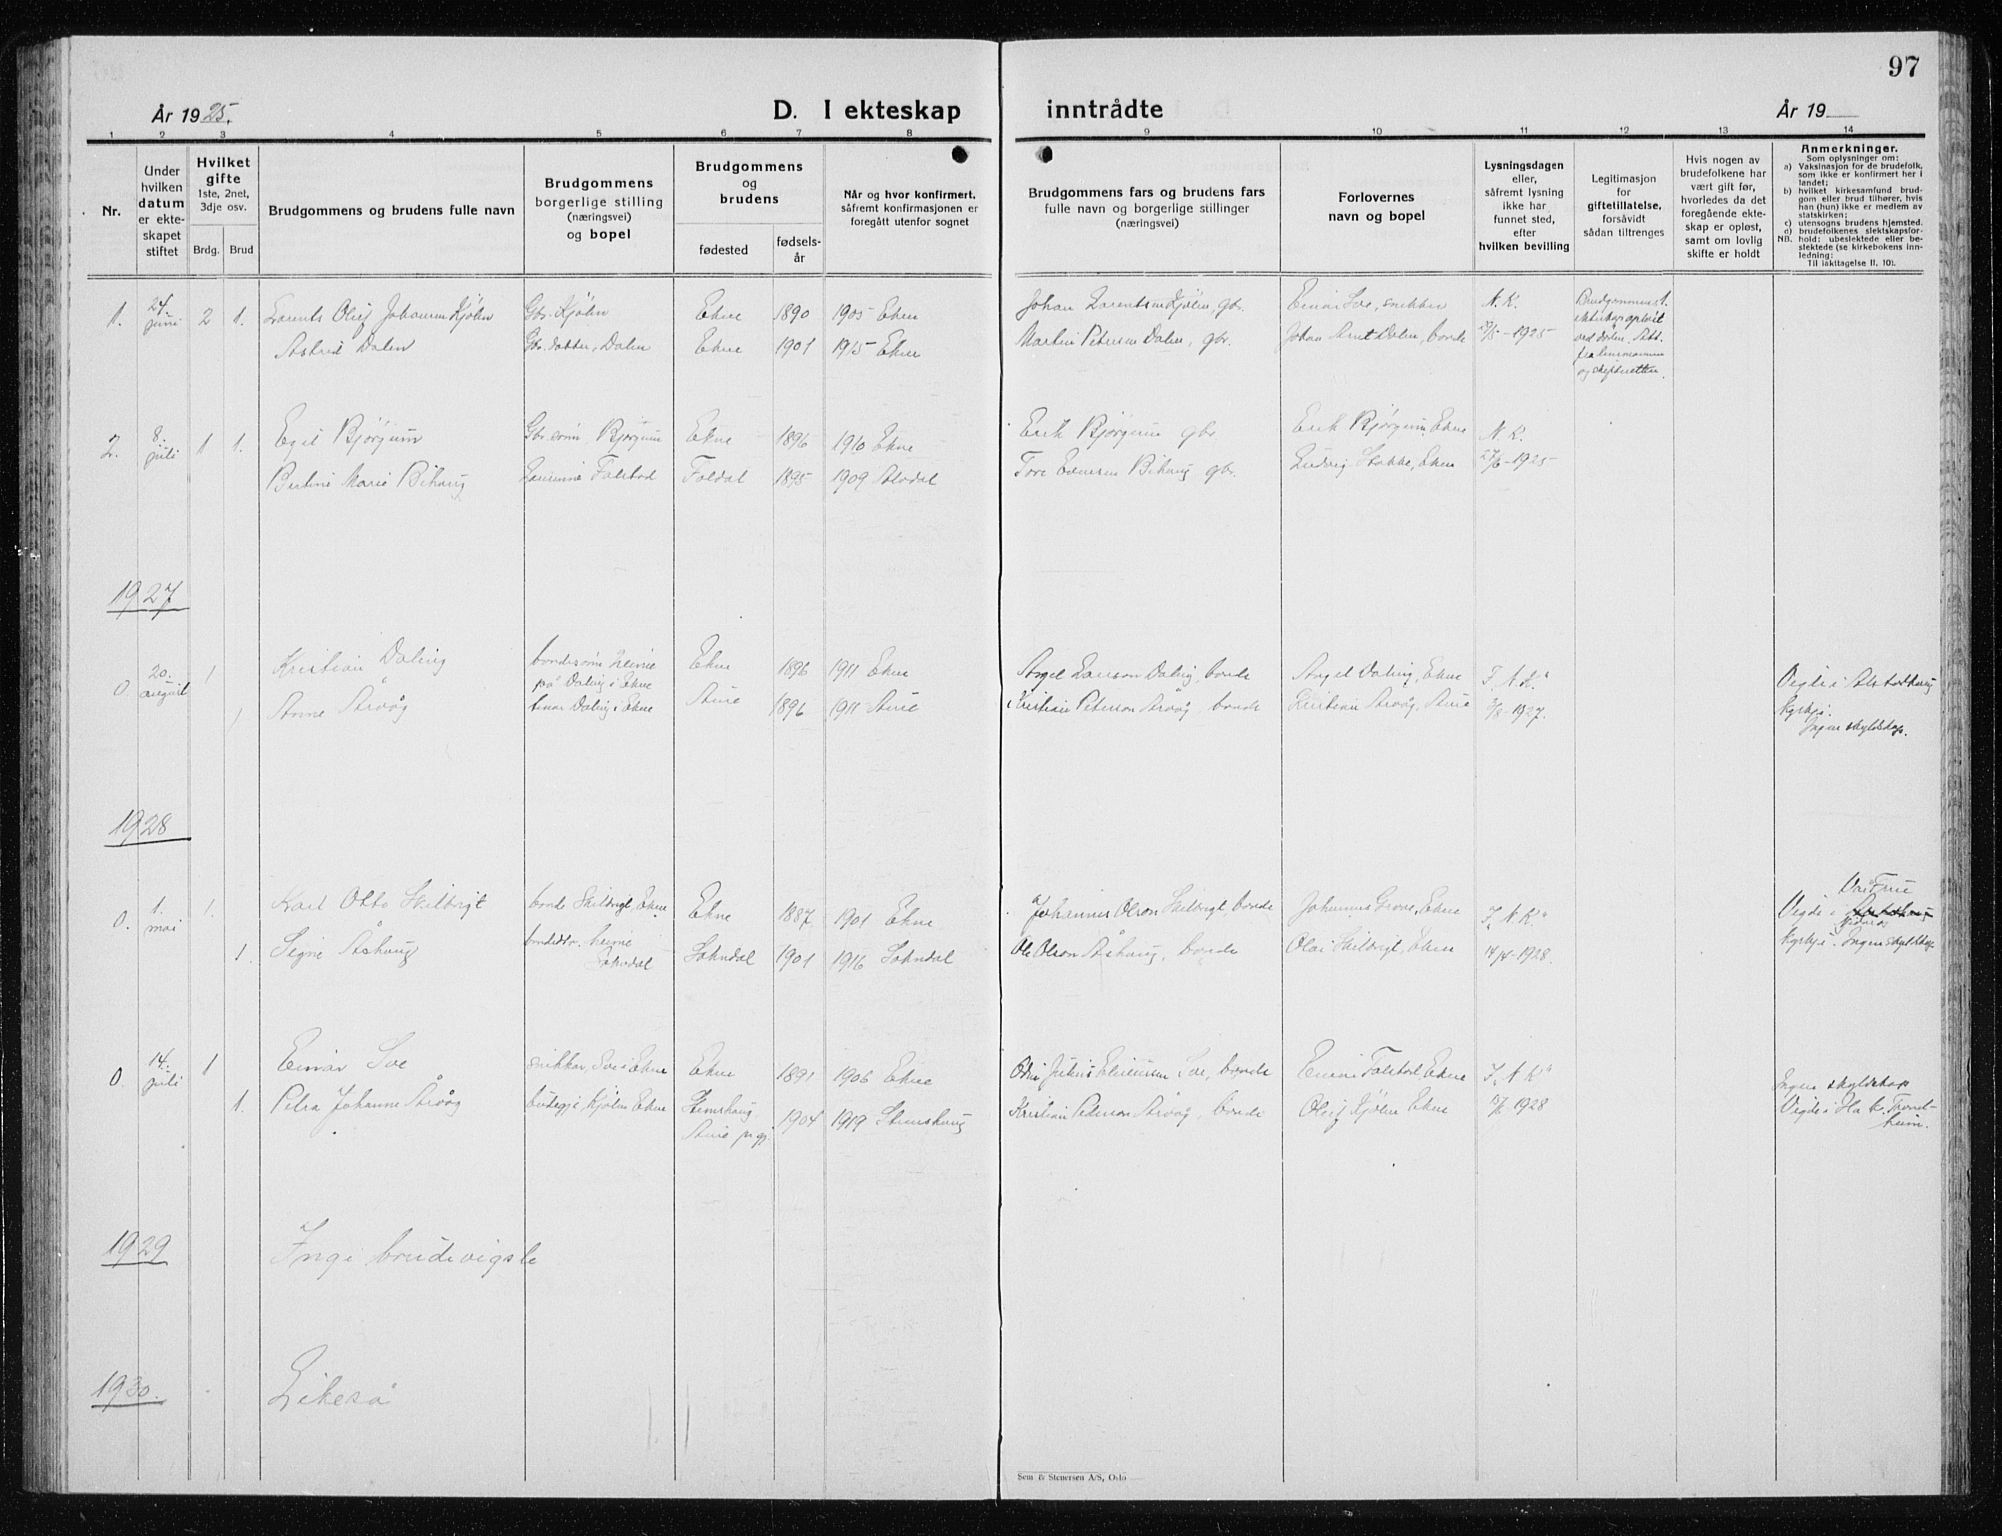 97
År 1925.
D. I ekteskap inntrådte
År 19
1 2 3 4 5 6 7 8 9 10 11 12 13 14
Nr.
Under hvilken datum er ekte-skapet stiftet
Hvilket gifte
1ste, 2net, 3dje osv.
Brdg. Brud
Brudgommens og brudens fulle navn
Brudgommens borgerlige stilling (næringsvei) og bopel
Brudgommens og brudens
fødested
fødsels-år
Når og hvor konfirmert, såfremt konfirmasjonen er foregått utenfor sognet
Brudgommens fars og brudens fars fulle navn og borgerlige stillinger (næringsvei)
Forlovernes navn og bopel
Lysningsdagen eller, såfremt lysning ikke har funnet sted, efter hvilken bevilling
Legitimasjon for giftetillatelse, forsåvidt sådan tiltrenges
Hvis nogen av brudefolkene har vært gift før, hvorledes da det foregående ekte-skap er opløst, samt om lovlig skifte er holdt
Anmerkninger.
Som oplysninger om:
a) Vaksinasjon for de brudefolk, som ikke er konfirmert her i landet;
b) hvilket kirkesamfund brud-gom eller brud tilhører, hvis han (hun) ikke er medlem av statskirken;
c) utensogns brudens hjemsted.
d) brudefolkenes slektskapsfor-hold: ubeslektede eller be-slektede (se kirkebokens inn-ledning:
NB.
Til iakttagelse II, 10).
1. 24. juni 2 1. Lorents Oluf Johansen Kjölen Gbr. Kjölen Ekne 1890 1905 Ekne Johan Lorentsen Kjölen, gbr. Einar Soe, snikker N. K.
Astrid Dalen Gbr. datter, Dalen Ekne 1901 1915 Ekne Martin Petersen Dalen, gbr. Johan Dalen, bonde 1925
Brudgommens 1. ekteskap opløst ved døden. Att. fra lensmannen og skifteretten.
2. 8. juli 1 1. Egil Bjørgum Gbr. sønn Bjørgum Ekne 1896 1910 Ekne Erik Bjørgum gbr. Erik Bjørgum, Ekne N. K.
Marie Bihaug Falstad Foldal 1895 1909 Tore Bihaug gbr. Ludvig Stokke, Ekne 27/6-1925
1927
0. 20. august 1 Kristian Daling bondesønn heime på Daling i Ekne Ekne 1896 1911 Ekne Daling, bonde Daling, Ekne F. N. K.
1 Anne Årvåg Daling i Ekne Aure 1896 1911 Aure Kristian Peterson Årvåg, bonde Kristian Årvåg, Aure 1927.
Vigde i Alstadhaug kyrkje. Ingen skyldskap.
1928
0. 1. mai 1 Karl Otto Skilbrigt bonde Skilbrigt, Ekne Ekne 1887 1901 Ekne Johannes Olson Skilbrigt, bonde Johannes Grove, Ekne F. N. K.
1. Signe Åshaug heime Sokndal Sokndal 1901 1916 Sokndal Ole Olson Åshaug, bonde Olai Skilbrigt, Ekne 14/4-1928.
Vår Frue
Vigde i Nidaros
kyrkje. Ingen skyldskap
0. 14. juli 1 Einar Soe snikkar, Soe i Ekne Ekne 1891 1906 Ekne Soe, bonde Einar Falstad, Ekne F. N. K.
1. Petra Johanne Årvåg budegje, Kjölen Ekne Stemshaug Aure pr.gj. 1904 1919 Stemshaug Kristian Peterson Årvåg, bonde Oluf Kjölen Ekne 1928
Ingen skyldskap
Vigde i Trond-heim.
1929 Inga brudevigsle
1930. Likeså
Sem & Stenersen A/S, Oslo